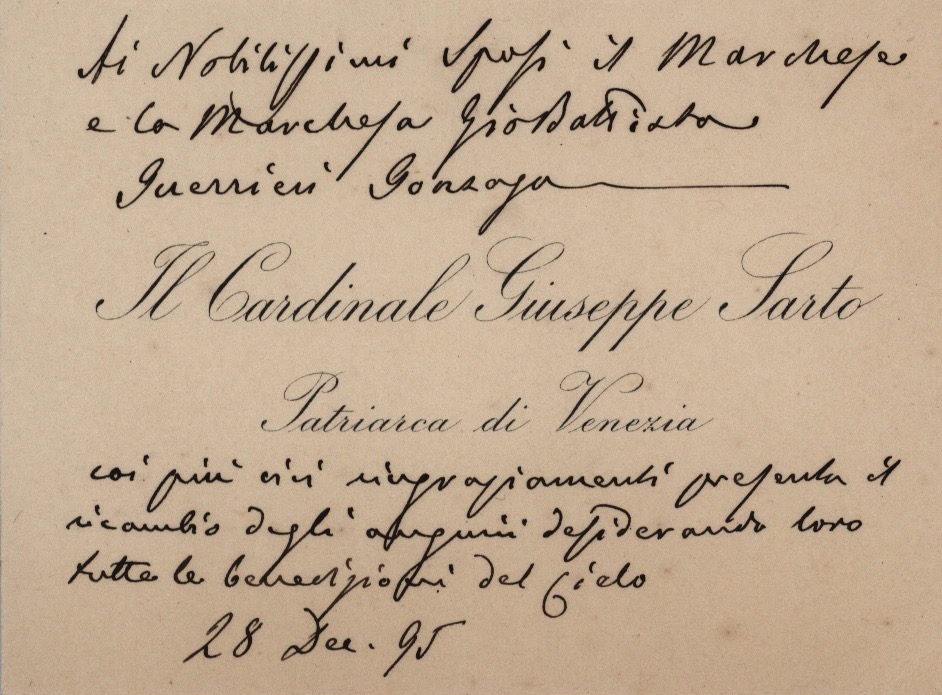 Ai Nobilissimi Sposi il Marchese
e la Marchesa GioBattista
Guerrieri Gonzaga
Il Cardinale Giuseppe Sarto
Patriarca di Venezia
coi più vivi ringraziamenti presenta il
ricambio degli augurii desiderando loro
tutte le benedizioni del Cielo
28 Dec. 95